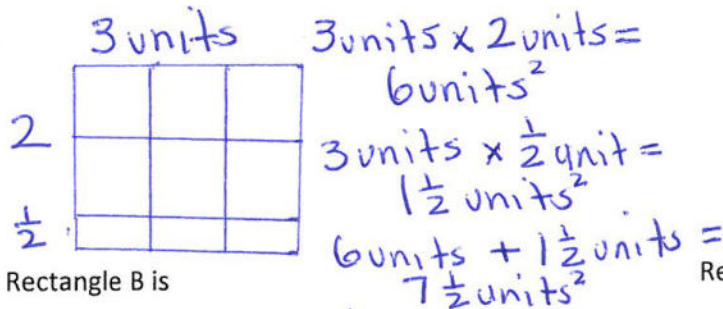 3 units
3 units x 2 units =
6 units²
2
3 units x 1/2 unit =
1 1/2 units²
1/2
6 units + 1 1/2 units =
7 1/2 units²
Rectangle B is
Re